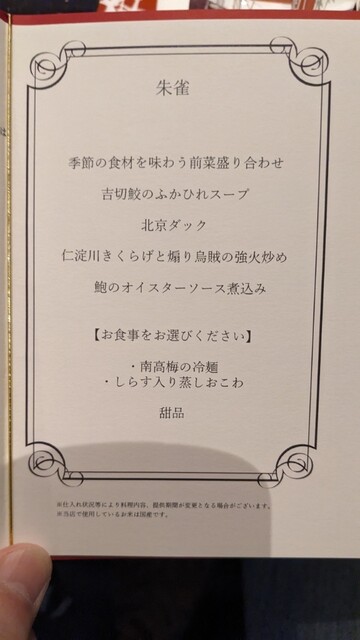 朱雀
季節の食材を味わう前菜盛り合わせ
吉切鮫のふかひれスープ
北京ダック
仁淀川きくらげと煽り烏賊の強火炒め
鮑のオイスターソース煮込み
【お食事をお選びください】
・南高梅の冷麺
・しらす入り蒸しおこわ
甜品
※仕入れ状況等により料理内容、提供期間が変更となる場合がございます。
※当店で使用しているお米は国産です。